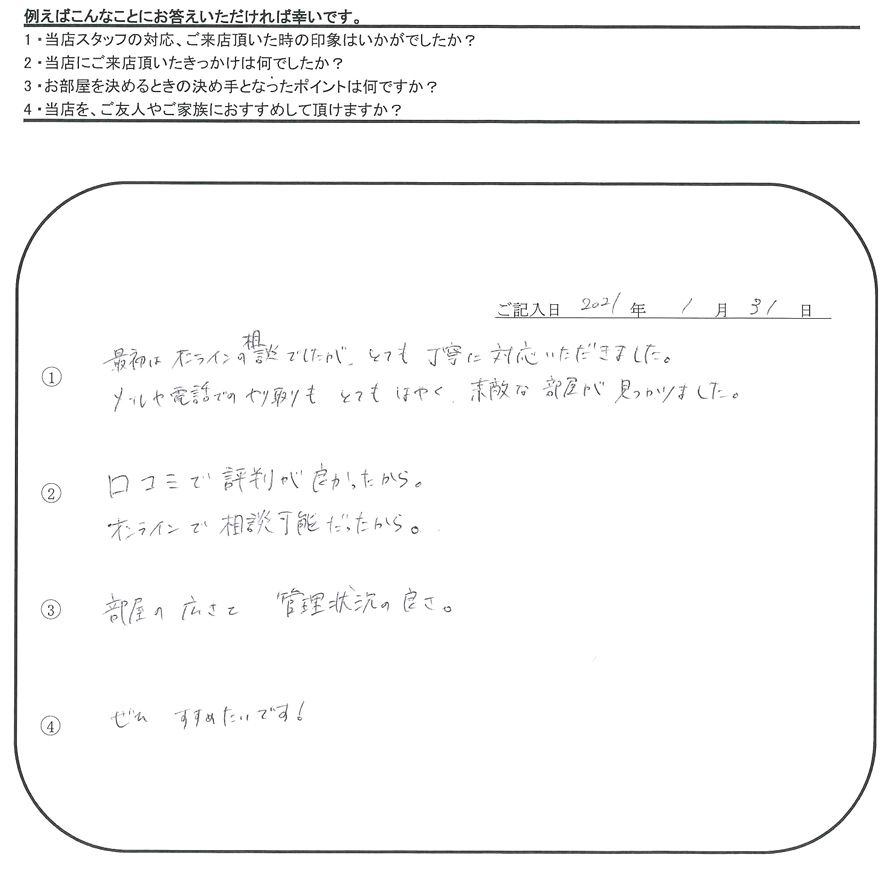 例えばこんなことにお答えいただければ幸いです。
1・当店スタッフの対応、ご来店頂いた時の印象はいかがでしたか？
2・当店にご来店頂いたきっかけは何でしたか？
3・お部屋を決めるときの決め手となったポイントは何ですか？
4・当店を、ご友人やご家族におすすめして頂けますか？
ご記入日 2021 年 1 月 31 日
① 最初はオンラインの相談でしたが、とても丁寧に対応いただきました。
メールや電話でのやり取りもとてもはやく、素敵な部屋が見つかりました。
② 口コミで評判が良かったから。
オンラインで相談可能だったから。
③ 部屋の広さと 管理状況の良さ。
④ ぜひ すすめたいです！